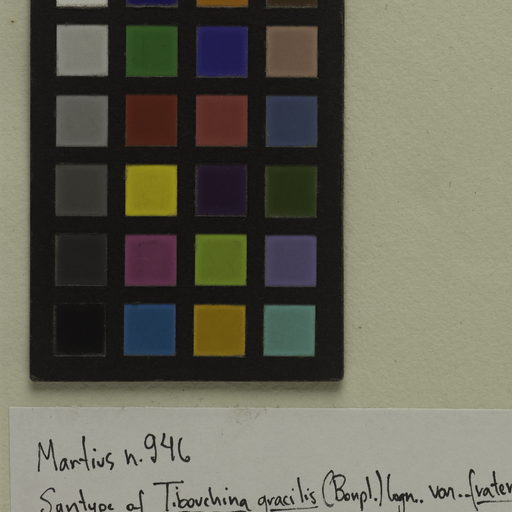 Martius n. 946
Syntype of Tibouchina gracilis (Bonpl.) Cogn. var. frater